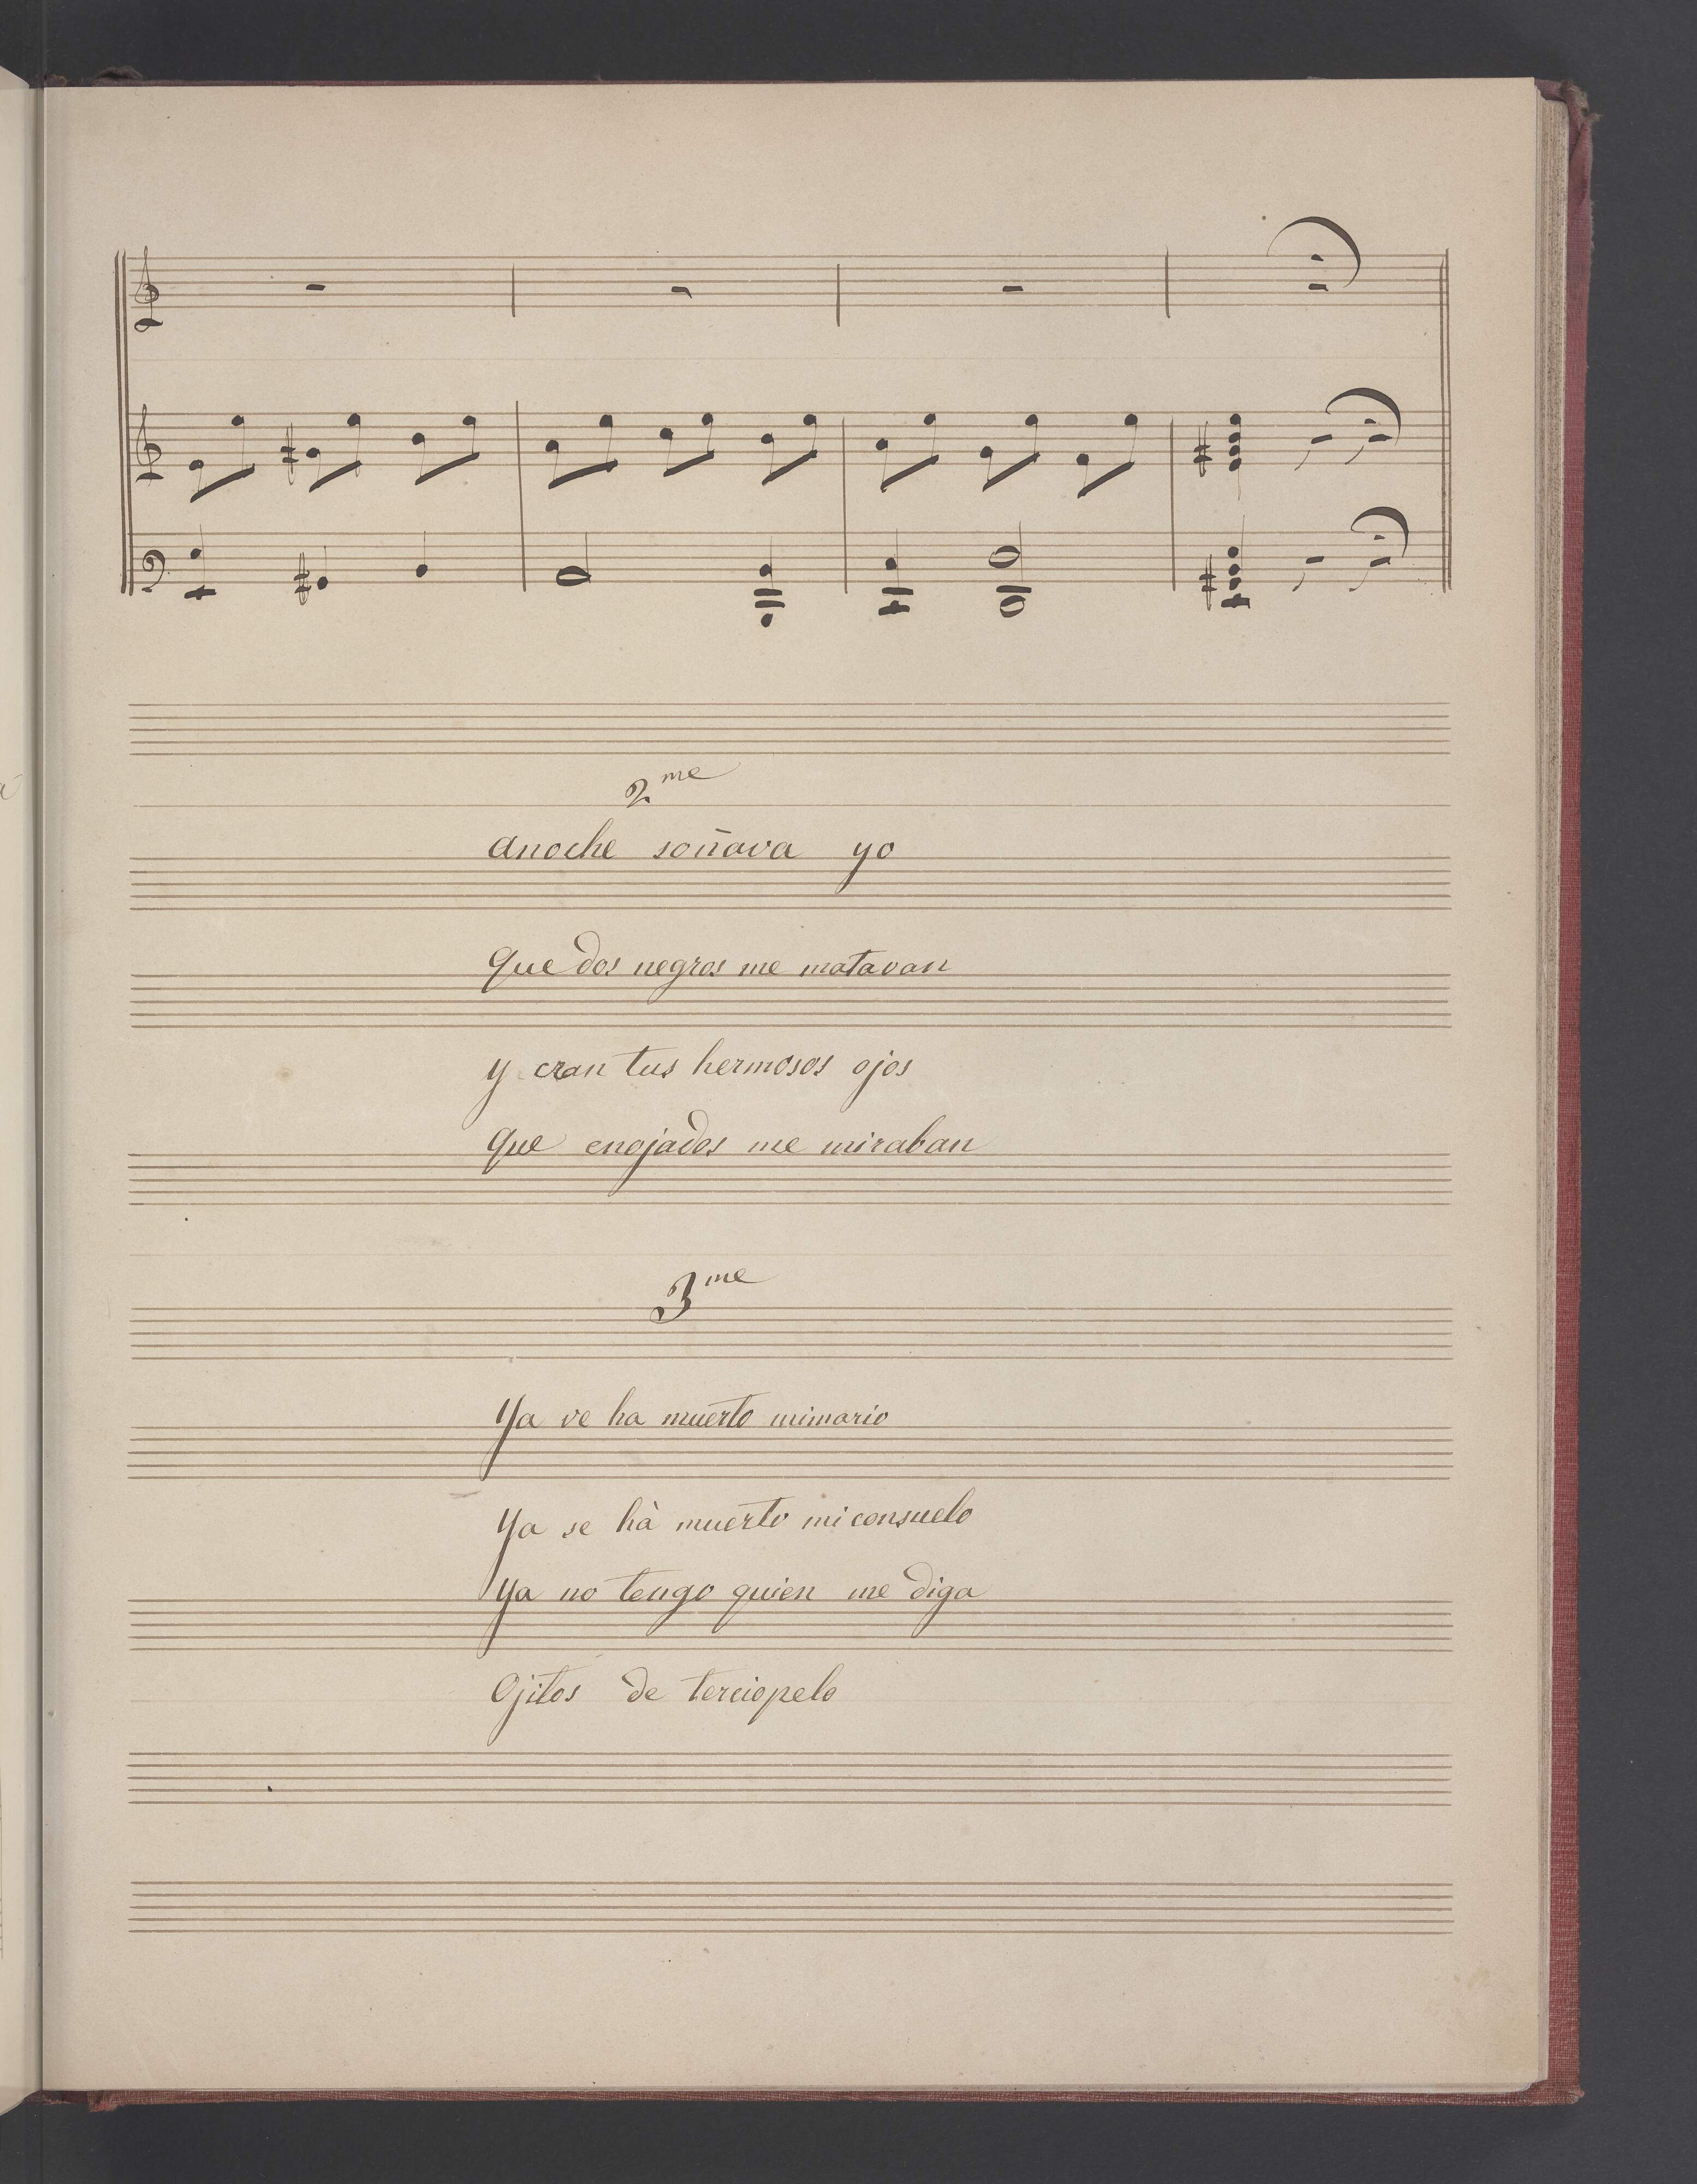 2me
Anoche soñava yo
Que dos negros me matavan
y eran tus hermosos ojos
Que enojados me miraban
3me
Ya ve ha muerto mimario
Ya se hà muerto mi consuelo
Ya no tengo quien me diga
Ojitos de terciopelo